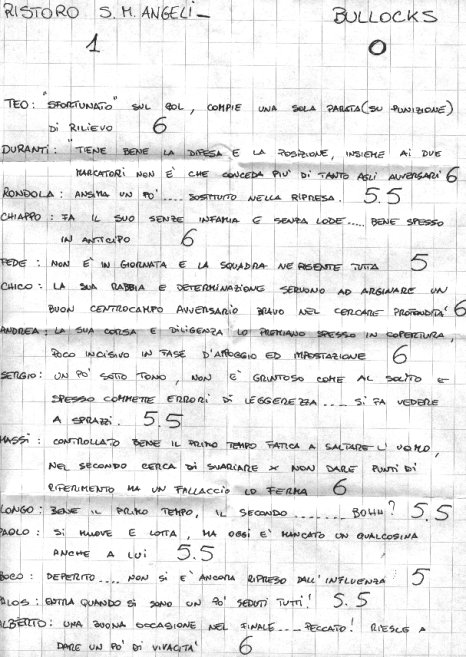 RISTORO S. M. ANGELI - BULLOCKS
1 0
TEO: "SFORTUNATO" SUL GOL, COMPIE UNA SOLA PARATA (SU PUNIZIONE)
DI RILIEVO 6
DURANTI: "TIENE BENE LA DIFESA E LA POSIZIONE, INSIEME AI DUE
MARCATORI NON È CHE CONCEDA PIU' DI TANTO AGLI AVVERSARI 6
RONDOLA: ANSIMA UN PO'.... SOSTITUITO NELLA RIPRESA. 5.5
CHIAPPO: FA IL SUO SENZE INFAMIA E SENZA LODE..... BENE SPESSO
IN ANTICIPO 6
FEDE: NON È IN GIORNATA E LA SQUADRA NE RISENTE TUTTA 5
CHICO: LA SUA RABBIA E DETERMINAZIONE SERVONO AD ARGINARE UN
BUON CENTROCAMPO AVVERSARIO BRAVO NEL CERCARE PROFONDITA' 6
ANDREA: LA SUA CORSA E DILIGENZA LO PREMIANO SPESSO IN COPERTURA,
POCO INCISIVO IN FASE D'APPOGGIO ED IMPOSTAZIONE 6
SERGIO: UN PO' SOTTO TONO, NON È GRINTOSO COME AL SOLITO E
SPESSO COMMETTE ERRORI DI LEGGEREZZA.... SI FA VEDERE
A SPRAZZI. 5.5
MASSI: CONTROLLATO BENE IL PRIMO TEMPO FATICA A SALTARE L'UOMO,
NEL SECONDO CERCA DI SVARIARE X NON DARE PUNTI DI
RIFERIMENTO MA UN FALLACCIO LO FERMA 6
LONGO: BENE IL PRIMO TEMPO, IL SECONDO ........ BOHH? 5.5
PAOLO: SI MUOVE E LOTTA, MA OGGI È MANCATO UN QUALCOSINA
ANCHE A LUI 5.5
BOCO: DEPERITO.... NON SI È ANCORA RIPRESO DALL'INFLUENZA 5
ALOS: ENTRA QUANDO SI SONO UN PO' SEDUTI TUTTI! 5.5
ALBERTO: UNA BUONA OCCASIONE NEL FINALE.... PECCATO! RIESCE A
DARE UN PO' DI VIVACITÀ 6